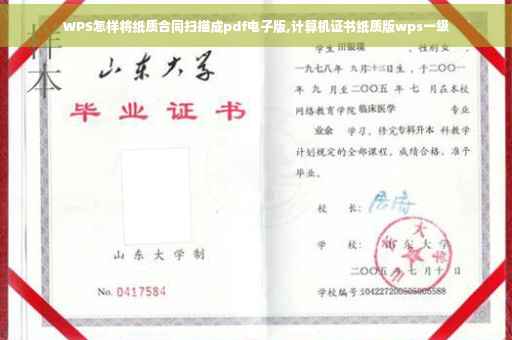 WPS怎样将纸质合同扫描成pdf电子版,计算机证书纸质版wps一级
样本
山东大学
毕业证书
山东大学制
No. 0417584
学生 田银瑞 ，性别 女 ，
一九七八年 九月十三日生，于二〇〇一
年 九 月至二〇〇五 年 七 月在本校
网络教育学院 临床医学 专业
业余 学习，修完 专科升本 科教学
计划规定的全部课程，成绩合格，准予
毕业。
校 长：
学 校： 山东大学
二〇〇五 年 七 月 十 日
学校编号:104227200505005588